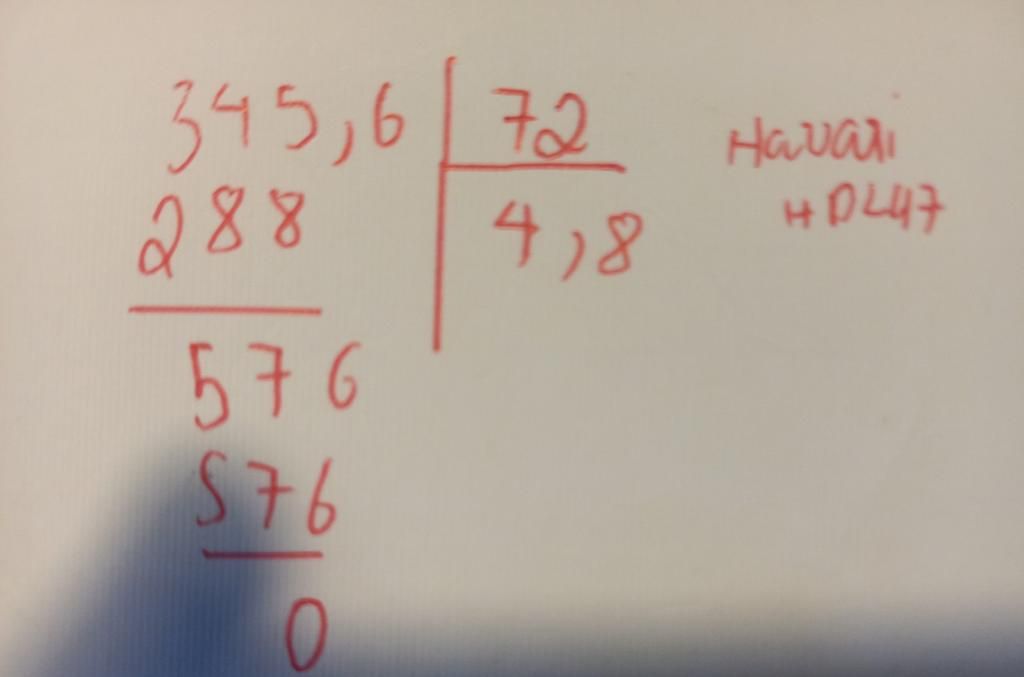 345,6 72
288 4,8
576
576
0
Havaii
HDL47